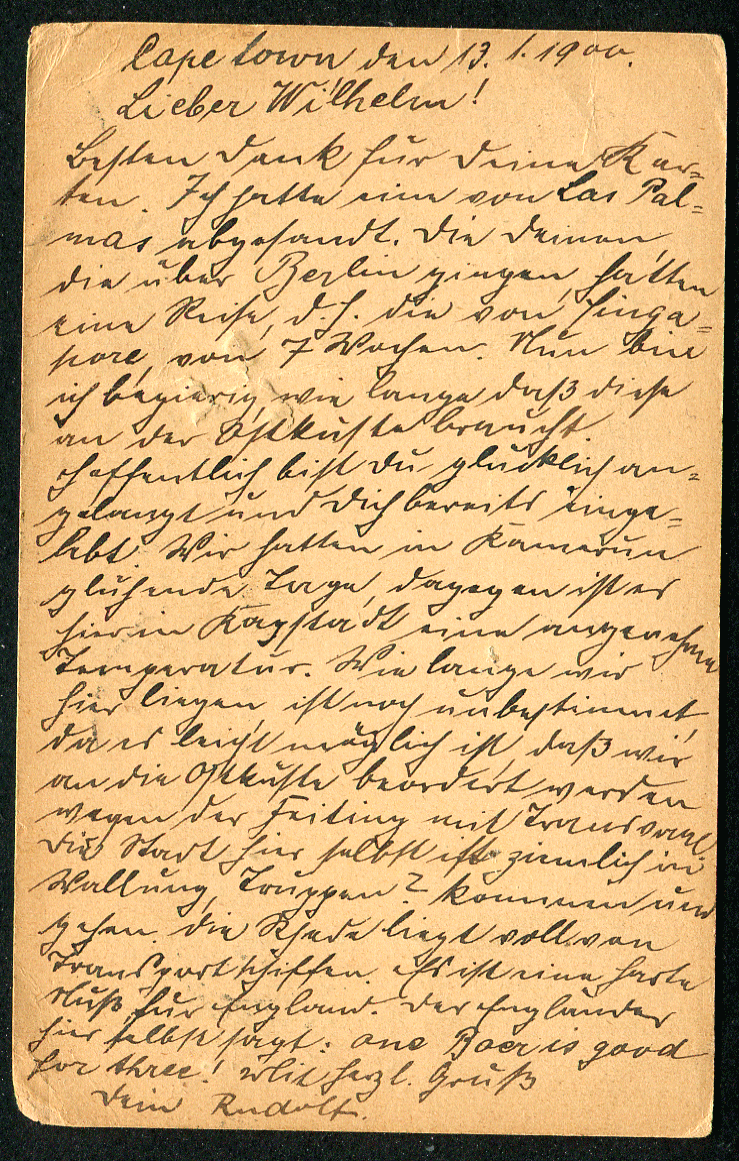 Cape town den 13. 1. 1900.
Lieber Wilhelm!
Besten Dank für Deine Kar=
ten. Ich hatte eine von Las Pal=
mas abgesandt. Die Deinen,
die über Berlin gingen, hatten
eine Reise, d. h. die von Singa=
pore, von 7 Wochen. Nun bin
ich begierig, wie lange daß diese
an der Ostküste braucht.
Hoffentlich bist Du glücklich an=
gelangt und Dich bereits einge=
lebt. Wir hatten in Kamerun
glühende Tage, dagegen ist es
hier in Kapstadt eine angenehme
Temperatur. Wie lange wir
hier liegen, ist noch unbestimmt,
da es leicht möglich ist, daß wir
an die Ostküste beordert werden
wegen der mit Transvaal.
Die Stadt hier selbst ist ziemlich in
Wallung, Truppen? kommen und
gehen. Die Rhede liegt voll von
Transportschiffen. Es ist eine harte
Nuß für England. Der Engländer
hier selbst sagt: one Boer is good
for three! Mit herzl. Gruß
Dein Rudolf.